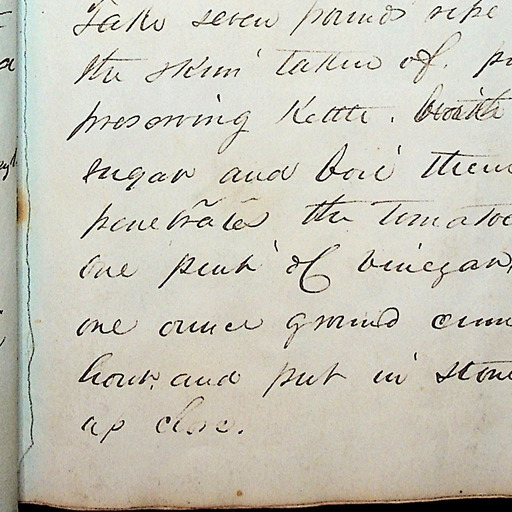 Take seven pounds ripe
the skin taken of. p
preserving Kettle. with
sugar and boil them
penetrates the tomatoe
One pint of vinegar,
one ounce ground cinn
hour, and put in stone
up close.